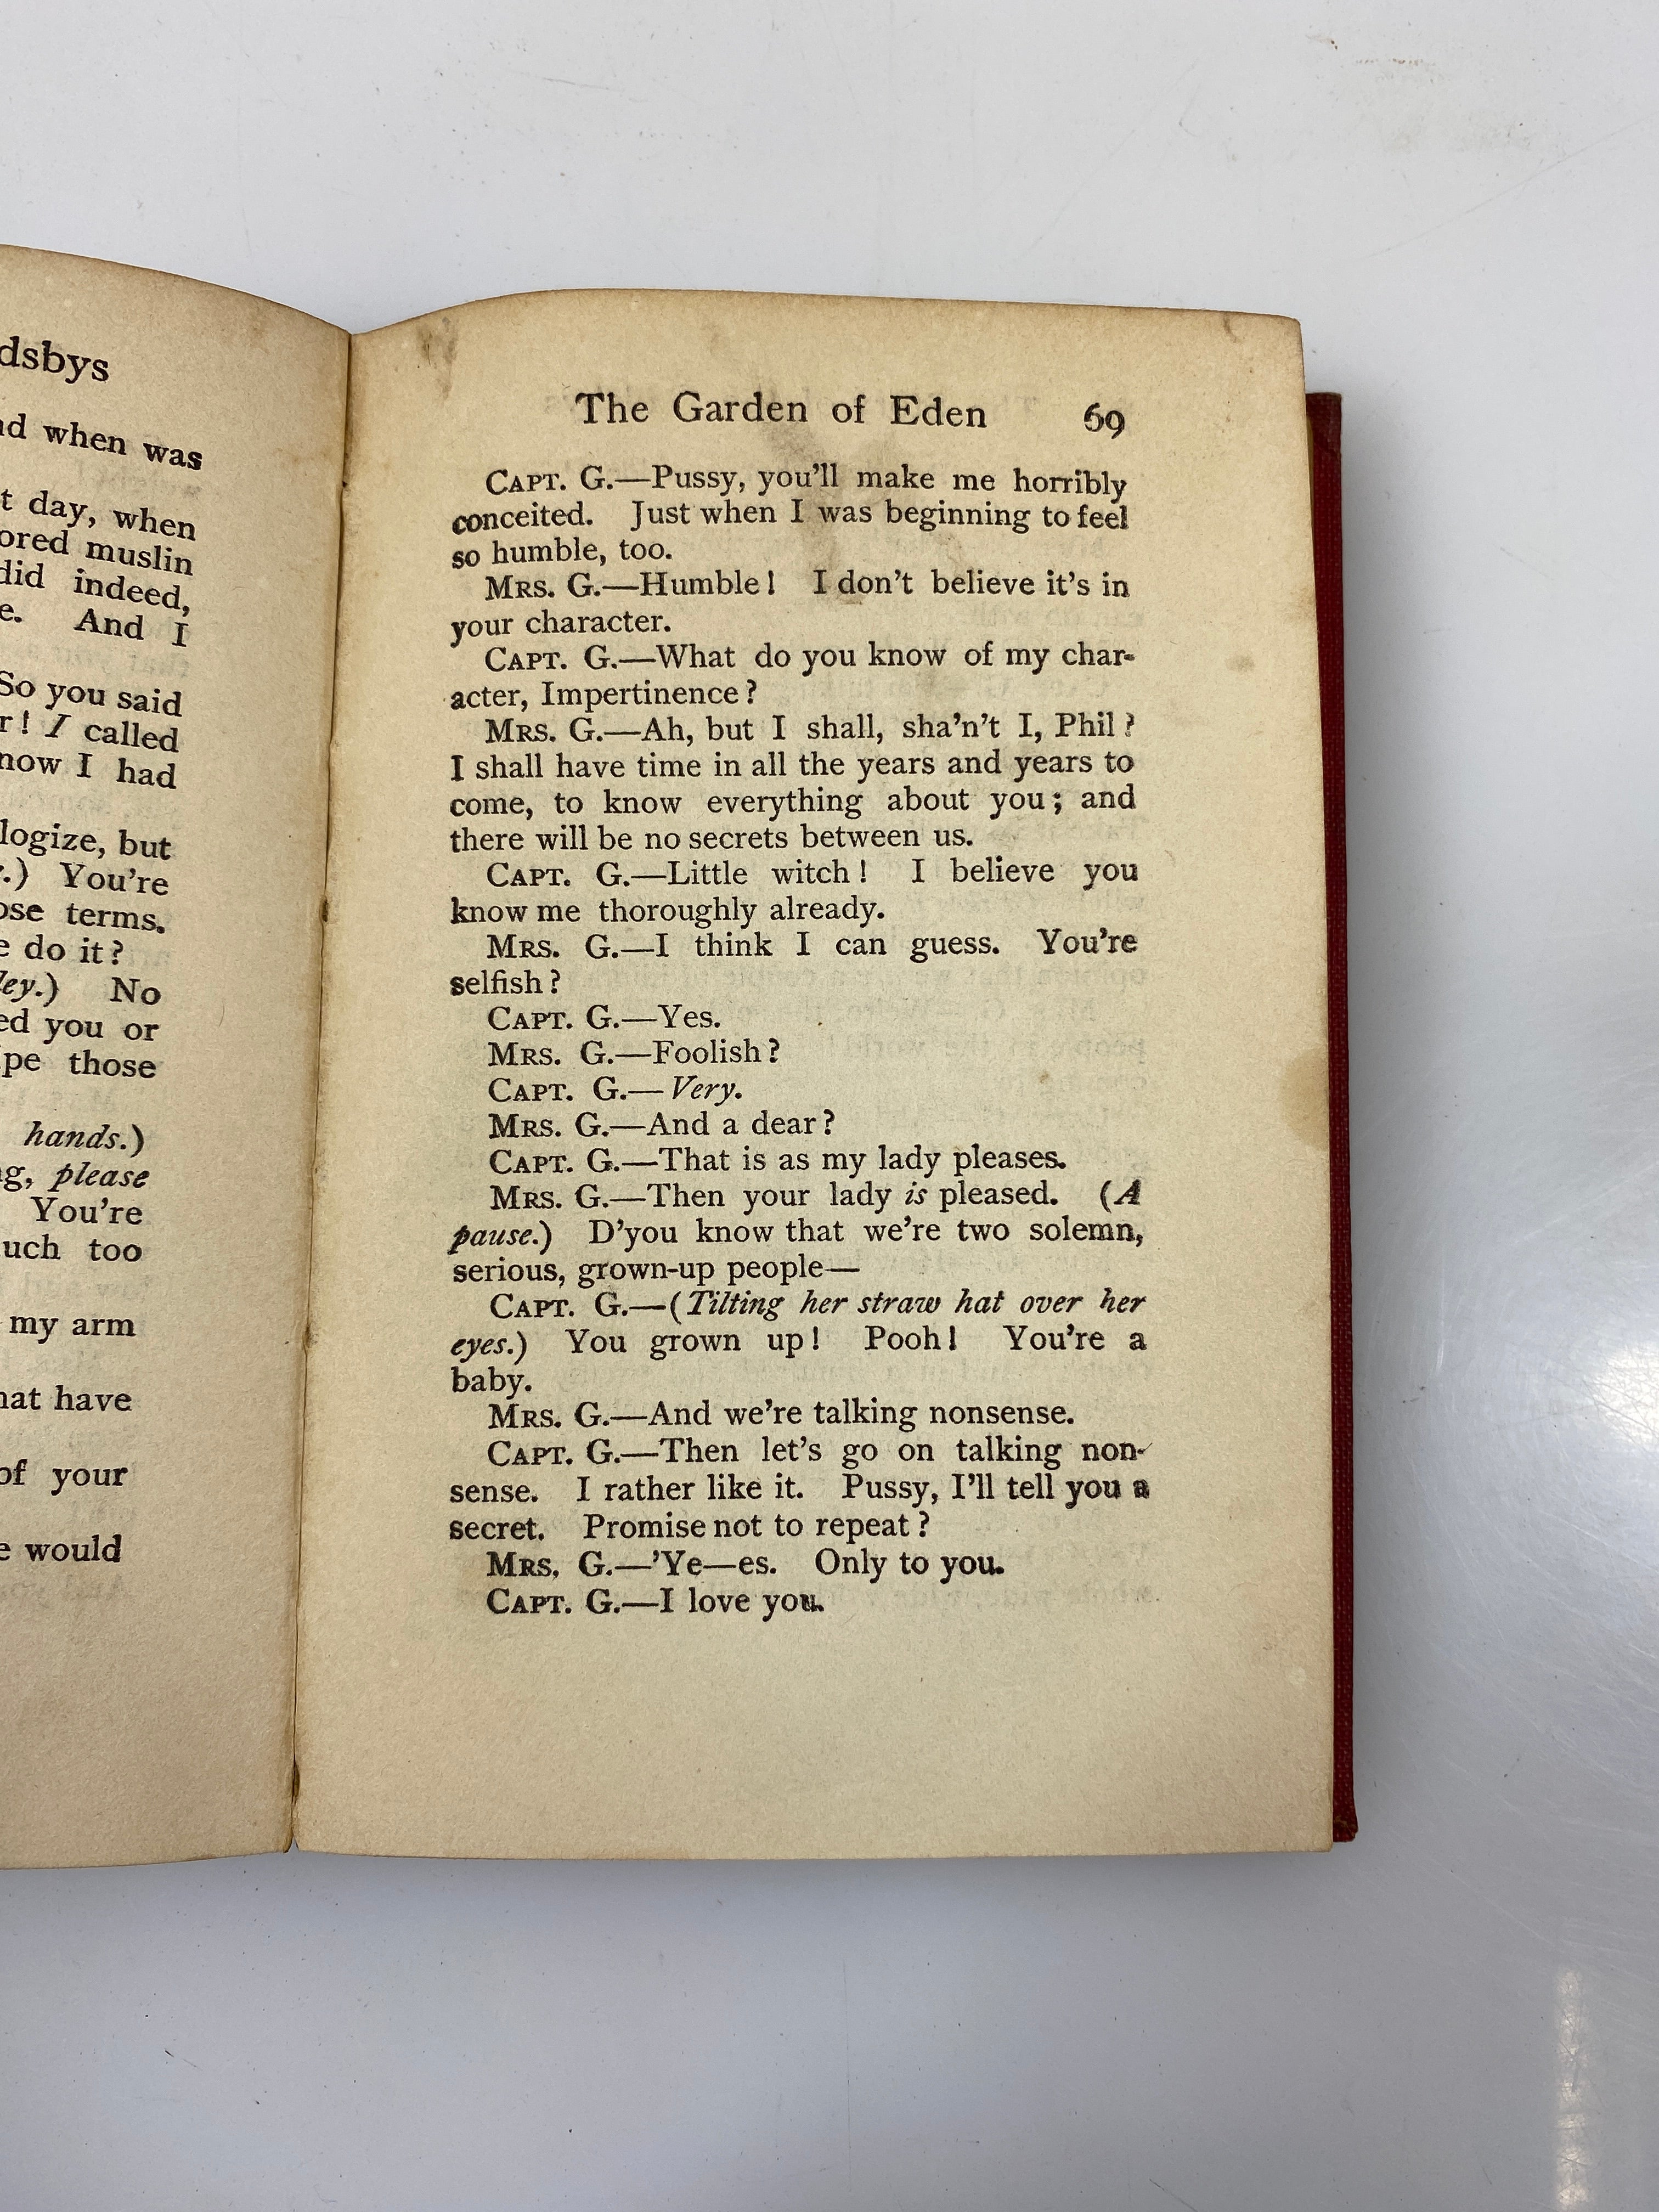 dsbys
when was
day, when
muslin
did indeed,
And I
So you said
I called
now I had
but
You're
terms.
do it?
No
you or
those
hands.)
please
You're
too
my arm
have
of your
would
The Garden of Eden 69
CAPT. G.—Pussy, you'll make me horribly
conceited. Just when I was beginning to feel
so humble, too.
MRS. G.—Humble! I don't believe it's in
your character.
CAPT. G.—What do you know of my char-
acter, Impertinence?
MRS. G.—Ah, but I shall, sha'n't I, Phil?
I shall have time in all the years and years to
come, to know everything about you; and
there will be no secrets between us.
CAPT. G.—Little witch! I believe you
know me thoroughly already.
MRS. G.—I think I can guess. You're
selfish?
CAPT. G.—Yes.
MRS. G.—Foolish?
CAPT. G.—Very.
MRS. G.—And a dear?
CAPT. G.—That is as my lady pleases.
MRS. G.—Then your lady is pleased. (A
pause.) D'you know that we're two solemn,
serious, grown-up people—
CAPT. G.—(Tilting her straw hat over her
eyes.) You grown up! Pooh! You're a
baby.
MRS. G.—And we're talking nonsense.
CAPT. G.—Then let's go on talking non-
sense. I rather like it. Pussy, I'll tell you a
secret. Promise not to repeat?
MRS. G.—'Ye—es. Only to you.
CAPT. G.—I love you.